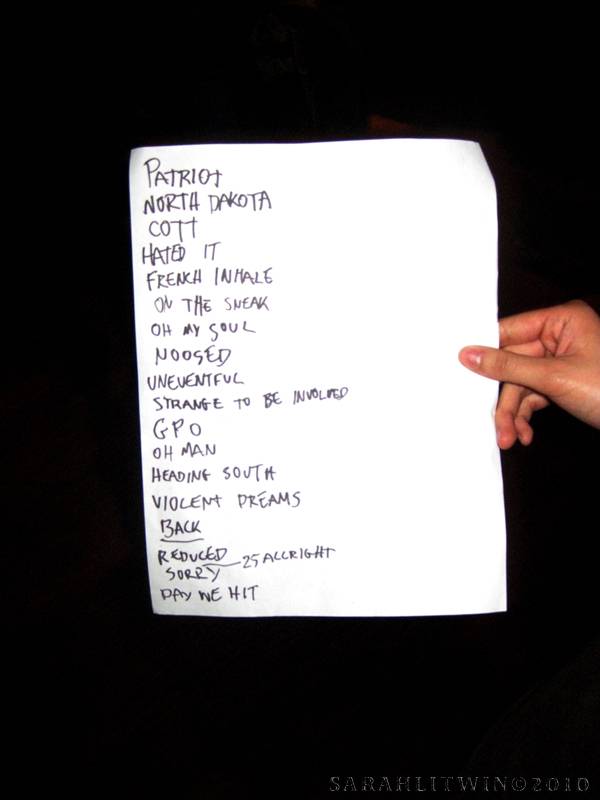 PATRIOT
NORTH DAKOTA
COTT
HATED IT
FRENCH INHALE
ON THE SNEAK
OH MY SOUL
NOOSED
UNEVENTFUL
STRANGE TO BE INVOLVED
GPO
OH MAN
HEADING SOUTH
VIOLENT DREAMS
BACK
REDUCED 25 ALLRIGHT
SORRY
DAY WE HIT
SARAHLITWIN©2010